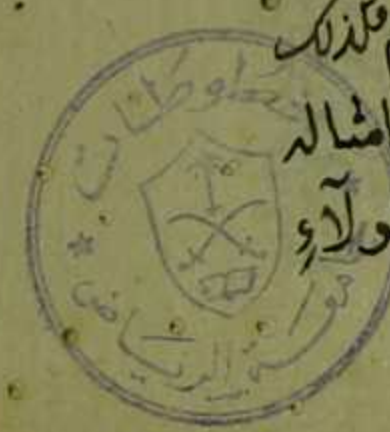 فكذلك
امثاله
ولآء
مخطوطات
الرياض